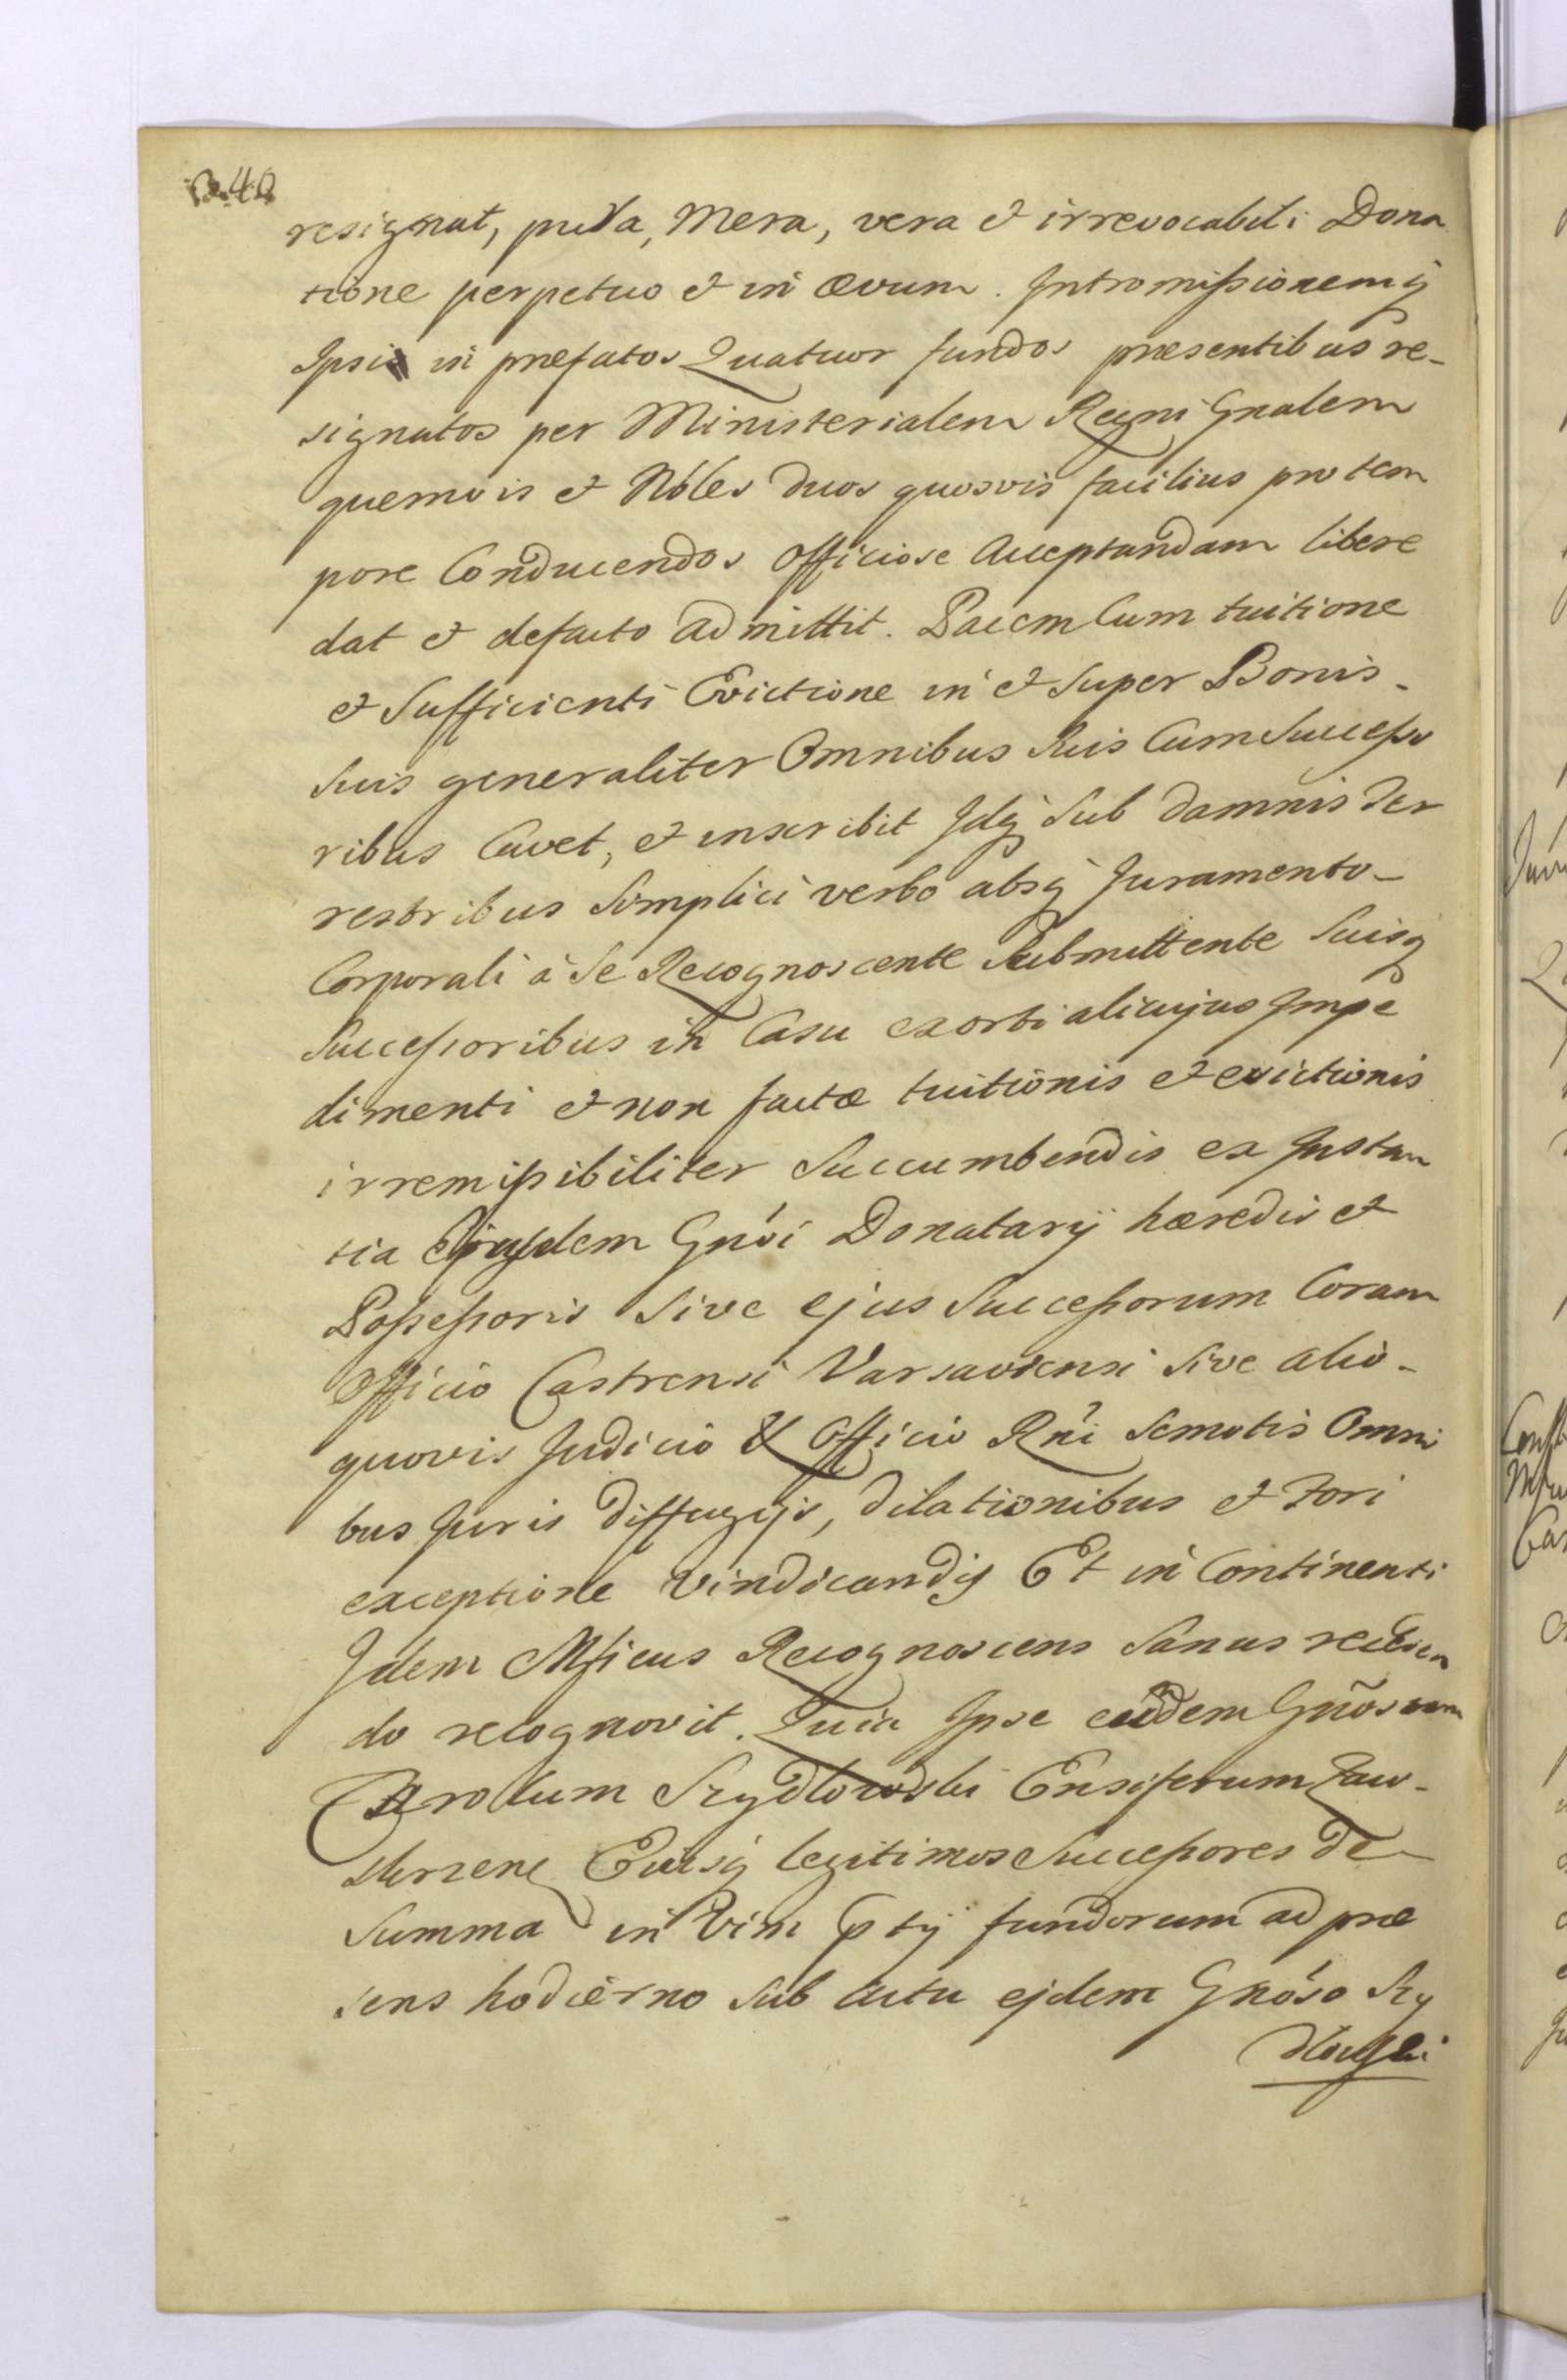 resignat, pura, Mera, vera et irrevocabili Dona
tione perpetuo et in ævum. Intromissionemq
Ipsi in præfatos Quatuor fundos præsentibus re-
signatos per Ministerialem Regni Gnalem
quemvis et Nóles duos quosvis facilius pro tem
pore Conducendos Officiose Acceptandam libere
dat et defacto admittit. Pacem Cum tuitione
et Sufficienti Evictione in et Super Bonis
Suis generaliter Omnibus Suis Cum Successo
ribus Cavet, et inscribit Idq Sub damnis ter
restribus Simplici verbo absq Juramento
Corporali à Se Recognoscente Submittente Suisq
Successoribus in Casu exorti alicujus Impe
dimenti et non factæ tuitionis et evictionis
irremissibiliter Succumbendis ex Instan
tia ejusdem Gnói Donatarÿ hæredis et
Possessoris Sive ejus Successorum Coram
Officio Castrensi Varsaviensi Sive alio
quovis Judicio et Officio Rni Semotis Omni
bus Juris diffugijs, dilationibus et Fori
exceptione Vindicandis Et in Continenti
Idem Mficus Recognoscens Sanus recedén
do recognovit. Quia Ipse eúdem Gnosum
Carolum Szydlowski Ensiferum Zaw-
skrzene Eiusq legitimos Successores de
Summa in Vim ptÿ fundorum ad præ
sens hodierno Sub actu ejdem Gnóso Szy
dłowski